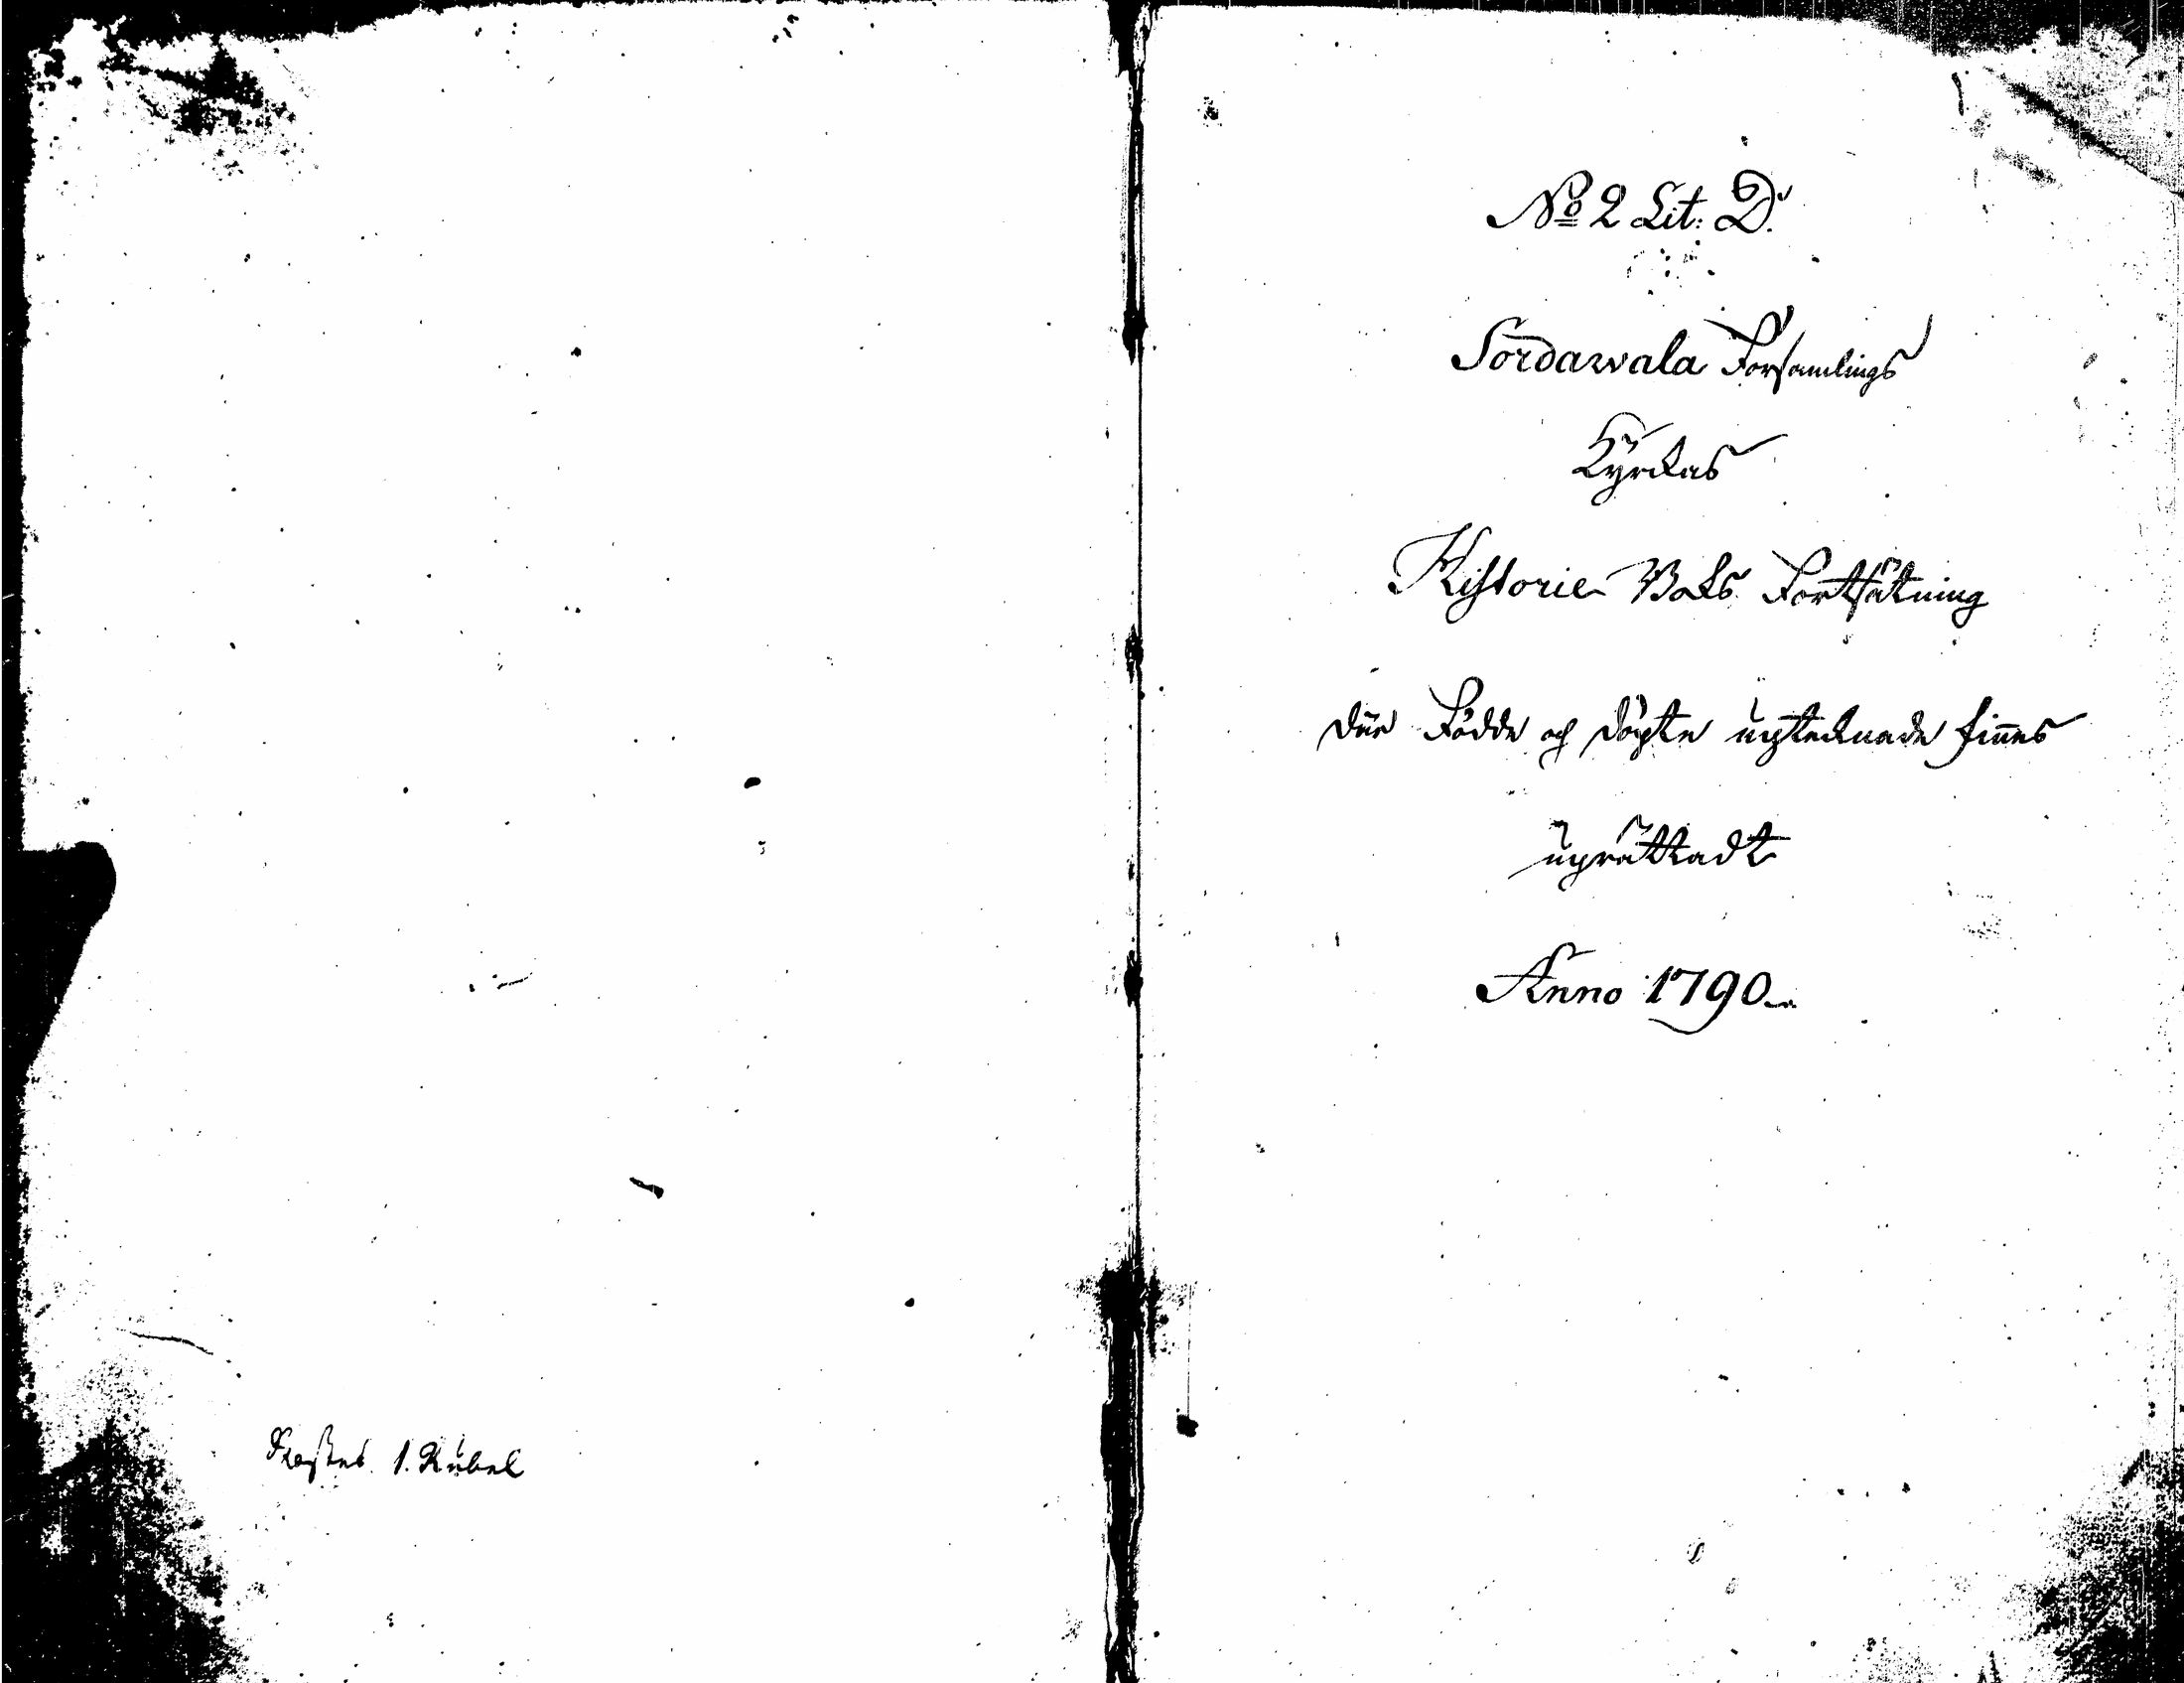 Kostar 1. Rubel
No 2 Lit: D.
Sordawala Församlings
Kyrckas
Historie Boks Fortsätning
där Födde och döpte uptecknade finnes
uprättadt
Anno 1790.